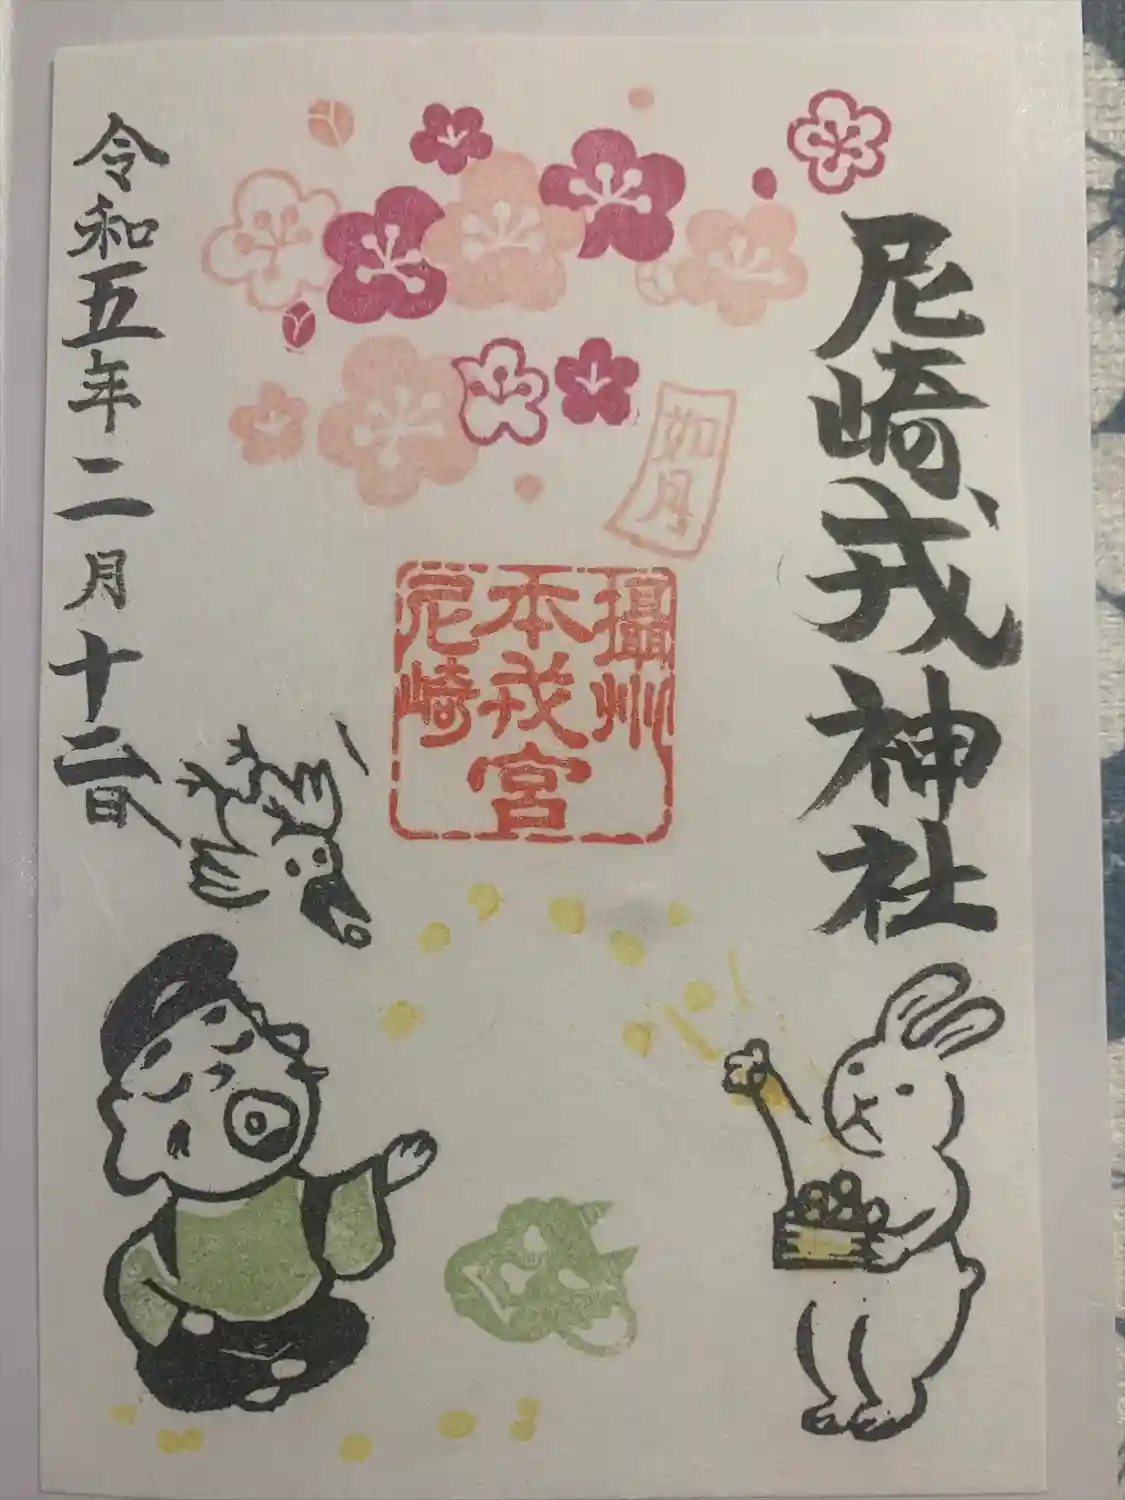 尼崎戎神社
如月
攝州
本戎宮
尼崎
令和五年二月十二日